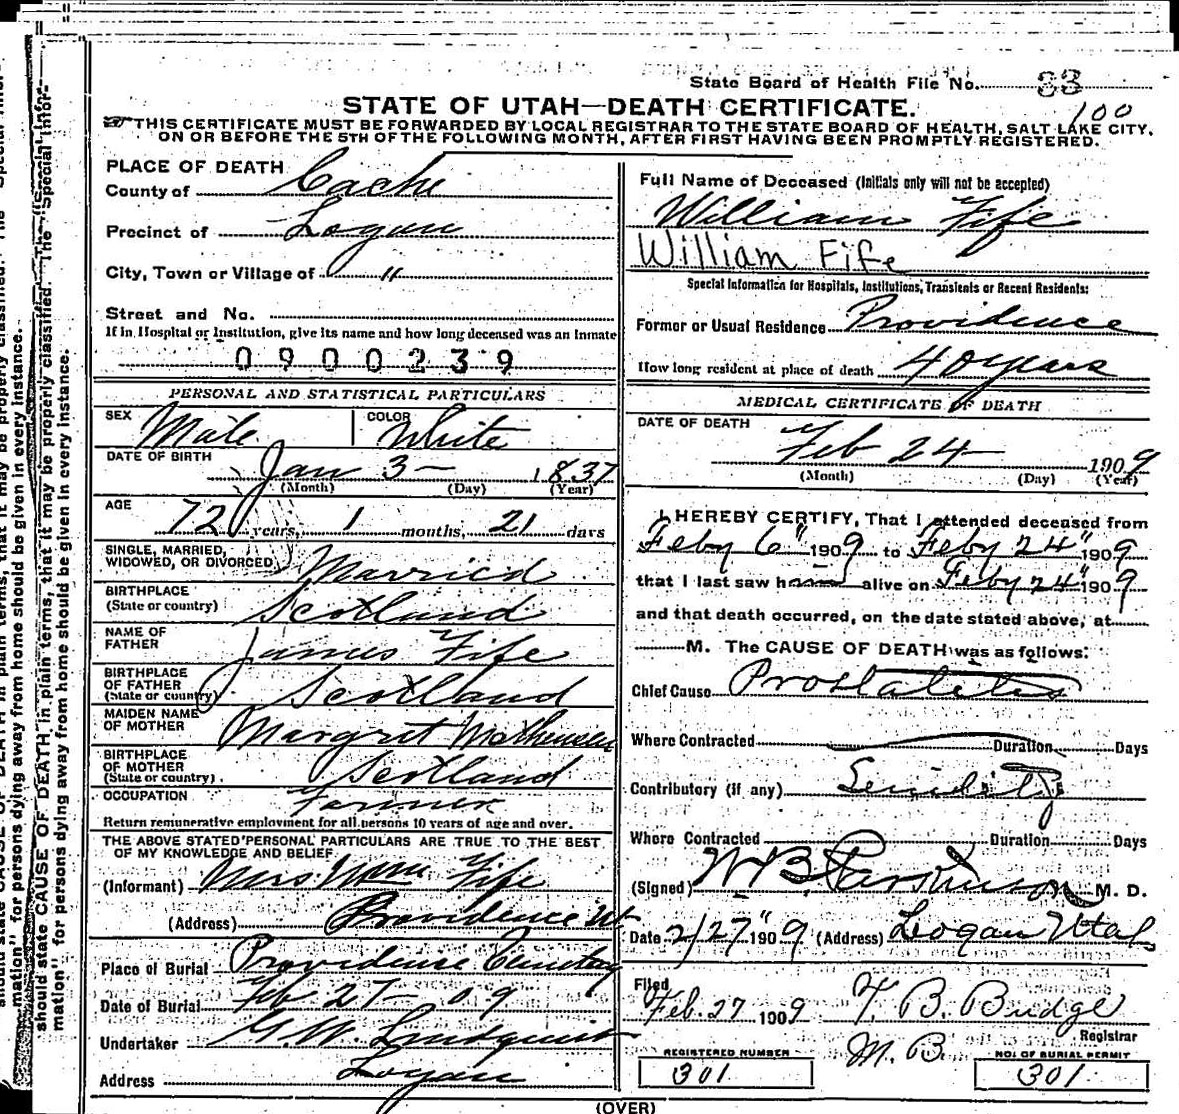 State Board of Health File No. 33
100
STATE OF UTAH—DEATH CERTIFICATE.
THIS CERTIFICATE MUST BE FORWARDED BY LOCAL REGISTRAR TO THE STATE BOARD OF HEALTH, SALT LAKE CITY,
ON OR BEFORE THE 5TH OF THE FOLLOWING MONTH, AFTER FIRST HAVING BEEN PROMPTLY REGISTERED.
PLACE OF DEATH
County of Cache
Precinct of Logan
City, Town or Village of "
Street and No.
If in Hospital or Institution, give its name and how long deceased was an Inmate
0900239
PERSONAL AND STATISTICAL PARTICULARS
SEX Male COLOR White
DATE OF BIRTH
Jan 3— 1837
(Month) (Day) (Year)
AGE
72 years, 1 months, 21 days
SINGLE, MARRIED,
WIDOWED, OR DIVORCED Married
BIRTHPLACE
(State or country) Scotland
NAME OF
FATHER James Fife
BIRTHPLACE
OF FATHER
(State or country) Scotland
MAIDEN NAME
OF MOTHER Margret
BIRTHPLACE
OF MOTHER
(State or country) Scotland
OCCUPATION Farmer
Return remunerative employment for all persons 10 years of age and over.
THE ABOVE STATED PERSONAL PARTICULARS ARE TRUE TO THE BEST
OF MY KNOWLEDGE AND BELIEF.
(Informant) Mrs Wm Fife
(Address) Providence Ut
Place of Burial Providence Cemetery
Date of Burial Feb 27— 09
Undertaker G.W. Lindquist
Address Logan
Full Name of Deceased (Initials only will not be accepted)
William Fife
William Fife
Special Information for Hospitals, Institutions, Transients or Recent Residents:
Former or Usual Residence Providence
How long resident at place of death 40 years
MEDICAL CERTIFICATE OF DEATH
DATE OF DEATH
Feb 24— 1909
(Month) (Day) (Year)
I HEREBY CERTIFY, That I attended deceased from
Feby 6" 1909 to Feby 24" 1909
that I last saw h alive on Feby 24" 1909
and that death occurred, on the date stated above, at
M. The CAUSE OF DEATH was as follows:
Chief Cause Prostatitis
Where Contracted Duration Days
Contributory (if any) Senility
Where Contracted Duration Days
(Signed) W B Parkinson M. D.
Date 2/27" 1909 (Address) Logan Utah
Filed
Feb. 27 1909 T. B. Budge
Registrar
M. B.
REGISTERED NUMBER
301
NO. OF BURIAL PERMIT
301
(OVER)
should state CAUSE OF DEATH in plain terms, that it may be properly classified. The "Special Infor-
mation" for persons dying away from home should be given in every instance.